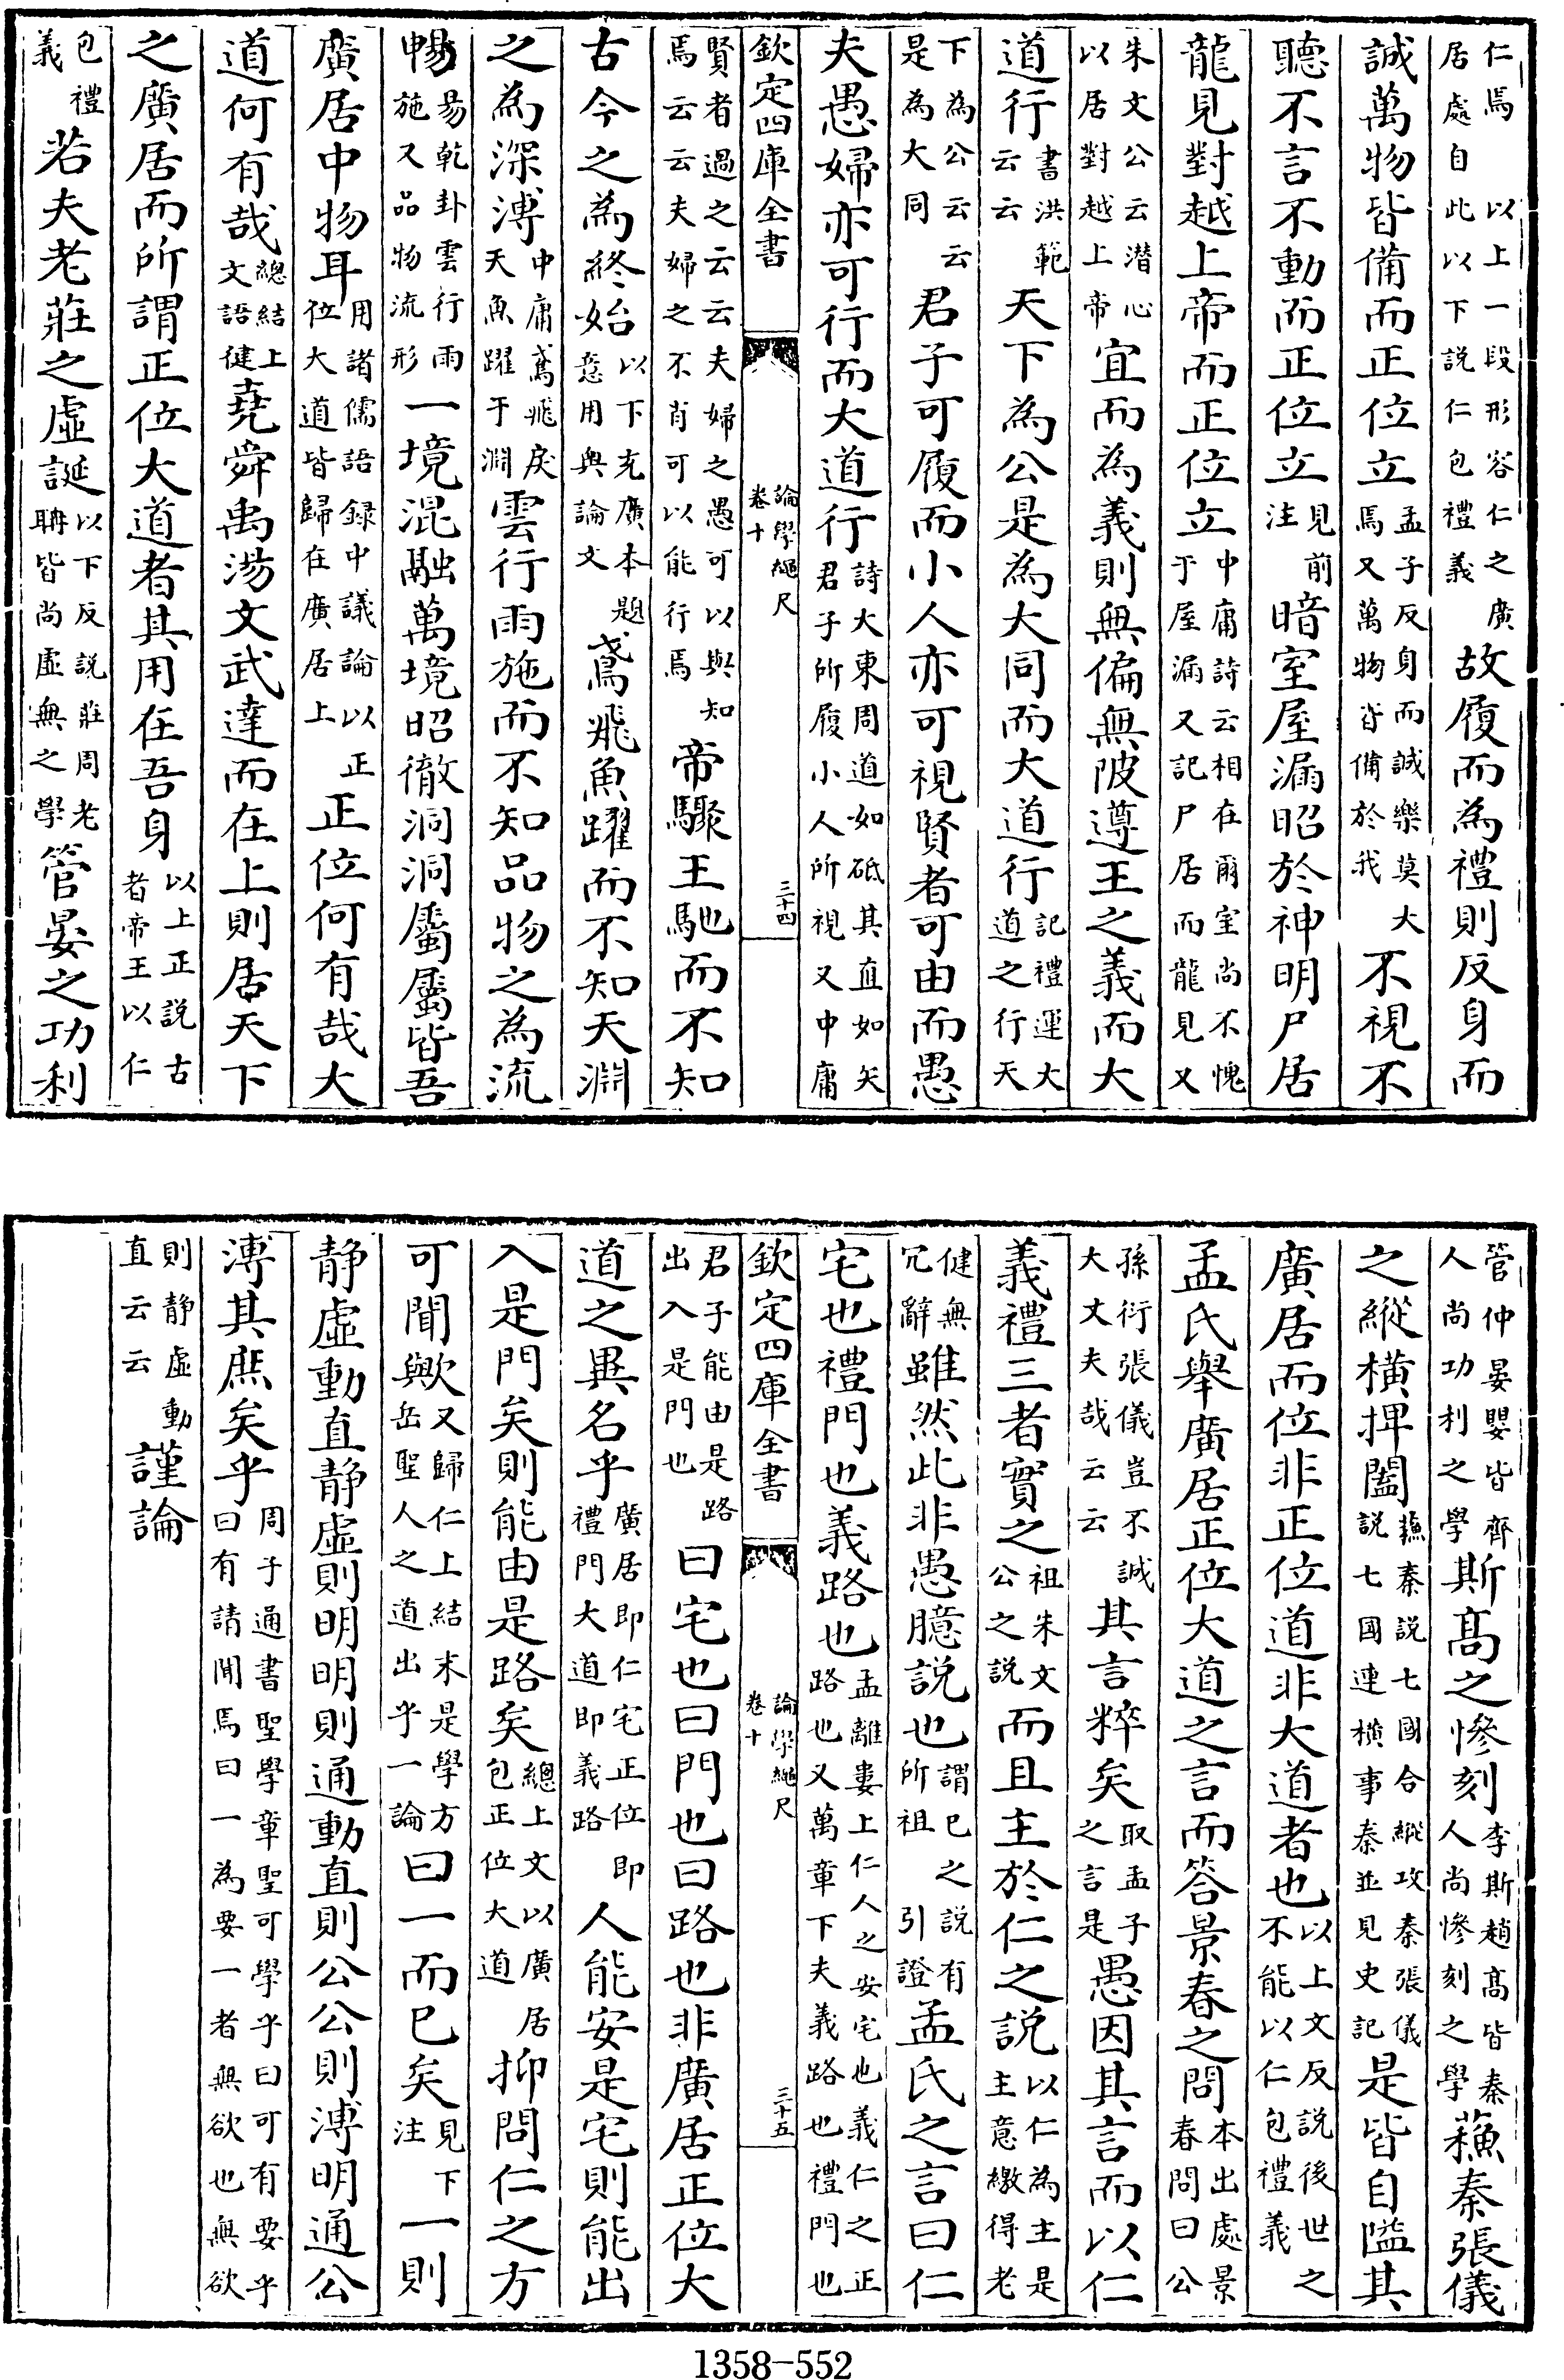 仁焉以上一段形容仁之廣居處自此以下説仁包禮義故履而為禮則反身而
誠萬物皆備而正位立孟子反身而誠樂莫大焉又萬物皆備於我不視不
聽不言不動而正位立見前注暗室屋漏昭於神明尸居
龍見對越上帝而正位立中庸詩云相在爾室尚不愧于屋漏又記尸居而龍見又
朱文公云潛心以居對越上帝宜而為義則無偏無陂遵王之義而大
道行書洪範云云天下為公是為大同而大道行記禮運大道之行天
下為公云云是為大同君子可履而小人亦可視賢者可由而愚
夫愚婦亦可行而大道行詩大東周道如砥其直如矢君子所履小人所視又中庸
欽定四庫全書 論學繩尺卷十 三十四
賢者過之云云夫婦之愚可以與知焉云云夫婦之不肖可以能行焉帝驟王馳而不知
古今之為終始以下充廣本題意用與論文鳶飛魚躍而不知天淵
之為深溥中庸鳶飛戾天魚躍于淵雲行雨施而不知品物之為流
暢易乾卦雲行雨施又品物流形一境混融萬境昭徹洞洞屬屬皆吾
廣居中物耳用諸儒語録中議論以正位大道皆歸在廣居上正位何有哉大
道何有哉總結上文語健堯舜禹湯文武達而在上則居天下
之廣居而所謂正位大道者其用在吾身以上正説古者帝王以仁
包禮義若夫老莊之虛誕以下反説莊周老耼皆尚虛無之學管晏之功利
管仲晏嬰皆齊人尚功利之學斯髙之慘刻李斯趙髙皆秦人尚慘刻之學蘓秦張儀
之縱橫捭闔蘓秦説七國合縱攻秦張儀説七國連橫事秦並見史記是皆自隘其
廣居而位非正位道非大道者也以上文反説後世之不能以仁包禮義
孟氏舉廣居正位大道之言而答景春之問本出處景春問曰公
孫衍張儀豈不誠大丈夫哉云云其言粹矣取孟子之言是愚因其言而以仁
義禮三者實之祖朱文公之説而且主於仁之説以仁為主是主意繳得老
健無冗辭雖然此非愚臆說也謂已之説有所祖引證孟氏之言曰仁
宅也禮門也義路也孟離婁上仁人之安宅也義仁之正路也又萬章下夫義路也禮門也
欽定四庫全書 論學繩尺卷十 三十五
君子能由是路出入是門也曰宅也曰門也曰路也非廣居正位大
道之異名乎廣居即仁宅正位即禮門大道即義路人能安是宅則能出
入是門矣則能由是路矣總上文以廣居包正位大道抑問仁之方
可聞歟又歸仁上結末是學方岳聖人之道出乎一論曰一而已矣見下注一則
静虛動直静虛則明明則通動直則公公則溥明通公
溥其庶矣乎周子通書聖學章聖可學乎曰可有要乎曰有請聞焉曰一為要一者無欲也無欲
則静虛動直云云謹論
1358-552